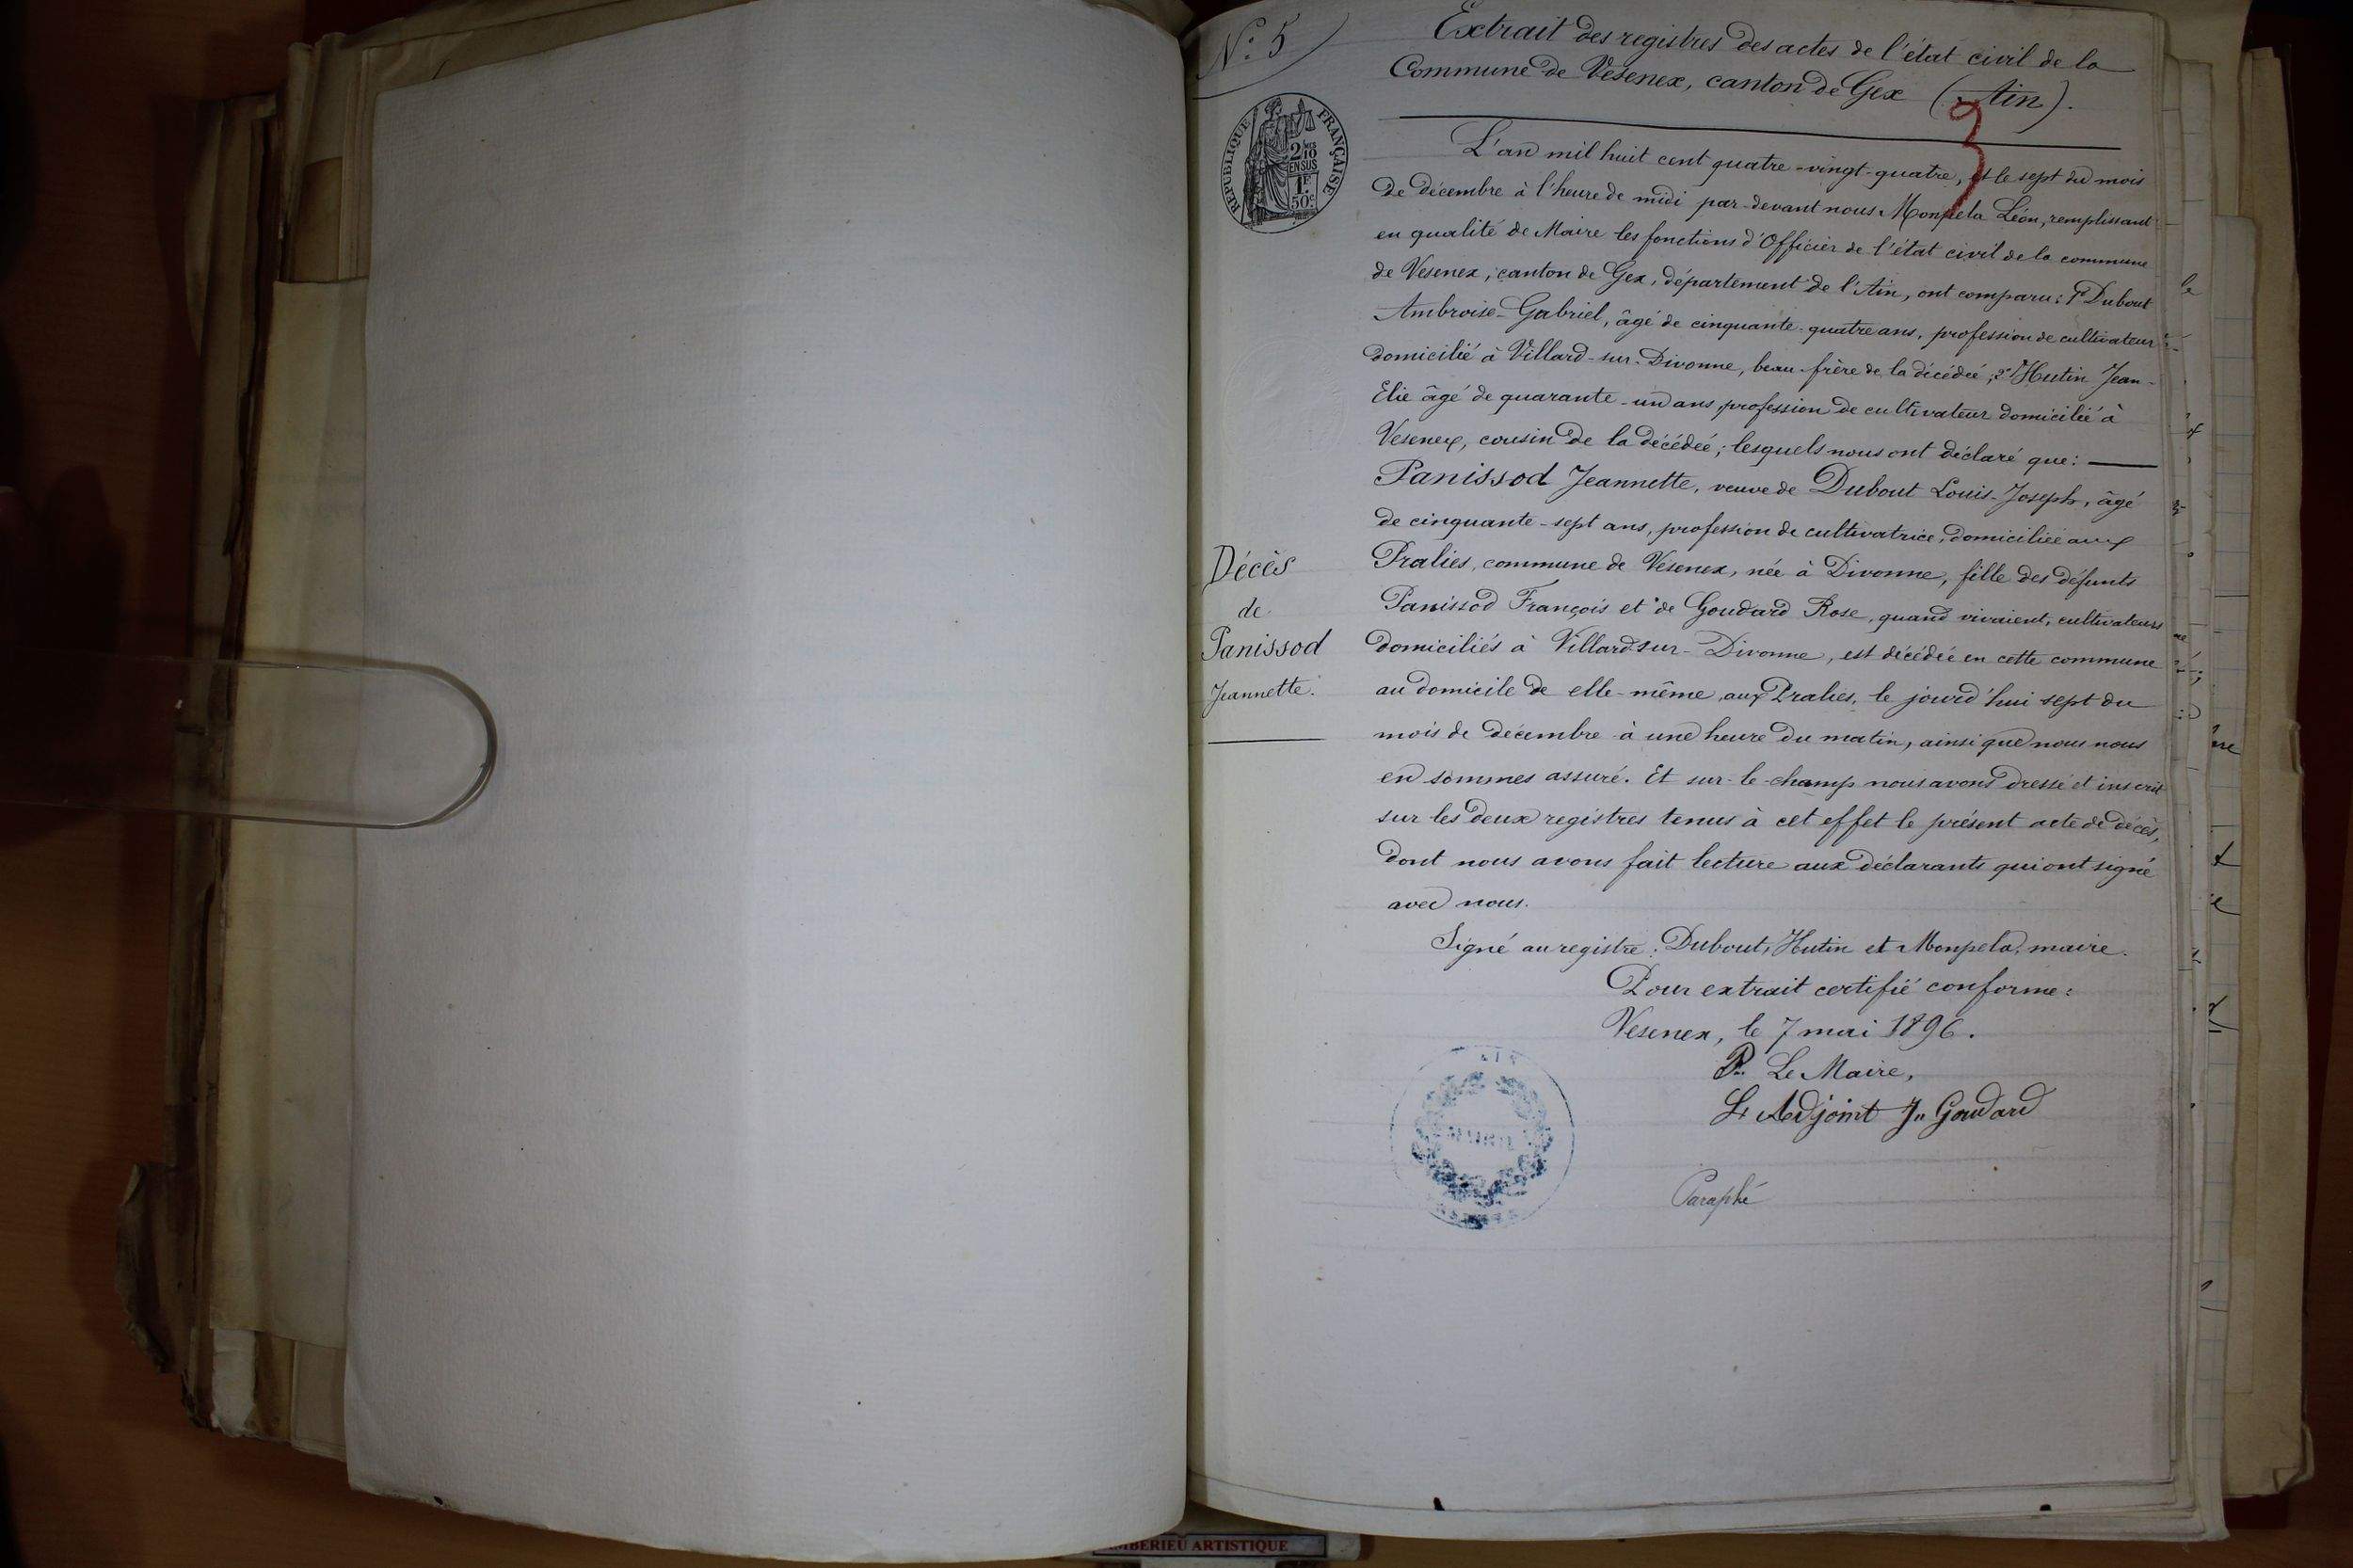 N.º 5
Extrait des registres des actes de l'état civil de la
Commune de Vesenex, canton de Gex (Ain).
RÉPUBLIQUE FRANÇAISE
2/10
EN SUS
1F
50c
L'an mil huit cent quatre-vingt-quatre, et le sept du mois
de décembre à l'heure de midi par-devant nous Monpela Léon, remplissant
en qualité de Maire les fonctions d'Officier de l'état civil de la commune
de Vesenex, canton de Gex, département de l'Ain, ont comparu: 1º Dubout
Ambroise-Gabriel, âgé de cinquante-quatre ans, profession de cultivateur
domicilié à Villard-sur-Divonne, beau-frère de la décédée; 2º Hutin Jean-
Elie âgé de quarante-un ans profession de cultivateur domicilié à
Vesenex, cousin de la décédée; lesquels nous ont déclaré que:
Panissod Jeannette, veuve de Dubout Louis-Joseph, âgé
de cinquante-sept ans, profession de cultivatrice, domiciliée aux
Pralies, commune de Vesenex, née à Divonne, fille des défunts
Panissod François et de Goudard Rose, quand vivaient, cultivateurs
domiciliés à Villard sur-Divonne, est décédée en cette commune
au domicile de elle-même aux Pralies, le jourd'hui sept du
mois de décembre à une heure du matin, ainsi que nous nous
en sommes assuré. Et sur-le-champ nous avons dressé et inscrit
sur les deux registres tenus à cet effet le présent acte de décès,
dont nous avons fait lecture aux déclarants qui ont signé
avec nous.
Décès
de
Panissod
Jeannette.
Signé au registre: Dubout, Hutin et Monpela, maire.
Pour extrait certifié conforme:
Vesenex, le 7 mai 1896.
Pr. Le Maire,
L'Adjoint Jn Goudard
Paraphé
AIN
MAIRIE
AMBÉRIEU ARTISTIQUE